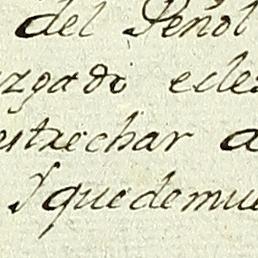 del Peñol
zgado ecles
estrechar a
que demue